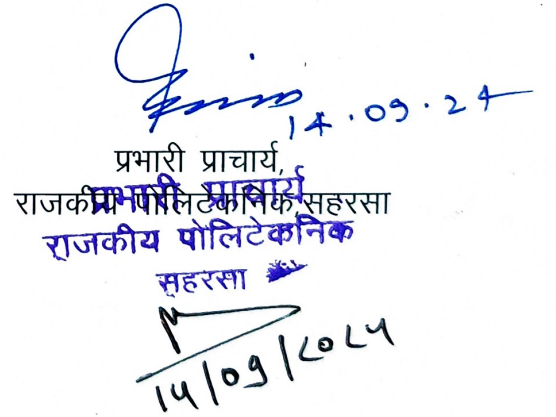 14.09.24
प्रभारी प्राचार्य,
राजकीय पोलिटेकनिक,सहरसा
प्रभारी प्राचार्य
राजकीय पोलिटेकनिक
सहरसा
14/09/2024